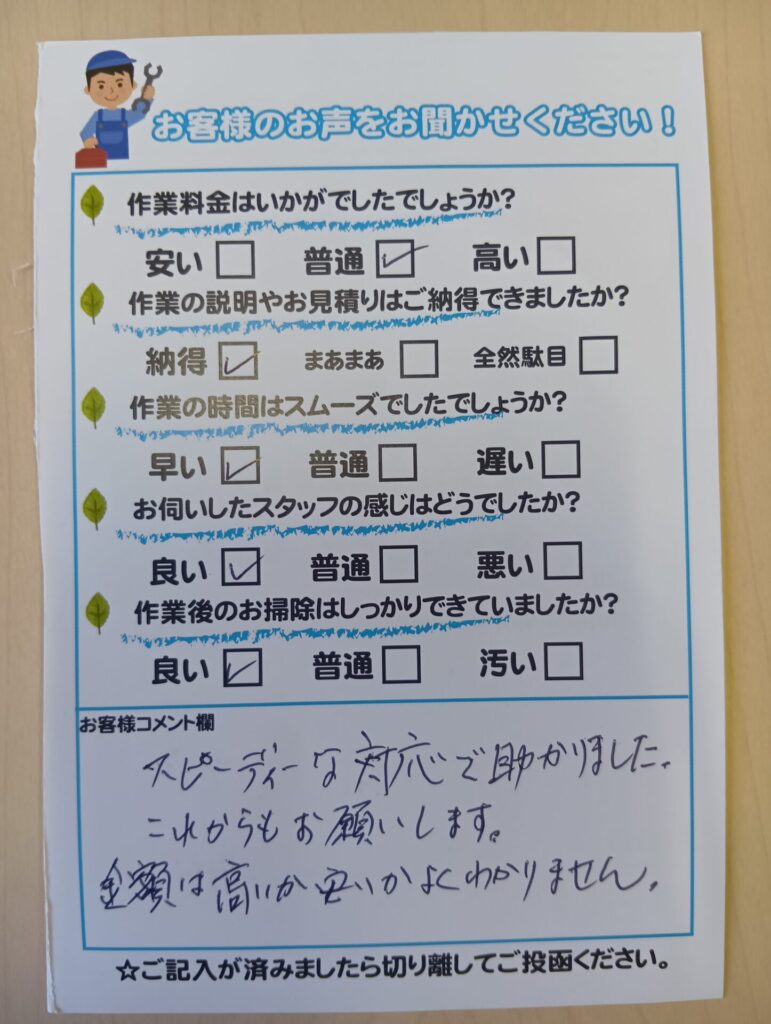 お客様のお声をお聞かせください！
作業料金はいかがでしたでしょうか?
安い □ 普通 ☑ 高い □
作業の説明やお見積りはご納得できましたか?
納得 ☑ まあまあ □ 全然駄目 □
作業の時間はスムーズでしたでしょうか?
早い ☑ 普通 □ 遅い □
お伺いしたスタッフの感じはどうでしたか?
良い ☑ 普通 □ 悪い □
作業後のお掃除はしっかりできていましたか?
良い ☑ 普通 □ 汚い □
お客様コメント欄
スピーディーな対応で助かりました。
これからもお願いします。
金額は高いか安いかよくわかりません。
☆ご記入が済みましたら切り離してご投函ください。